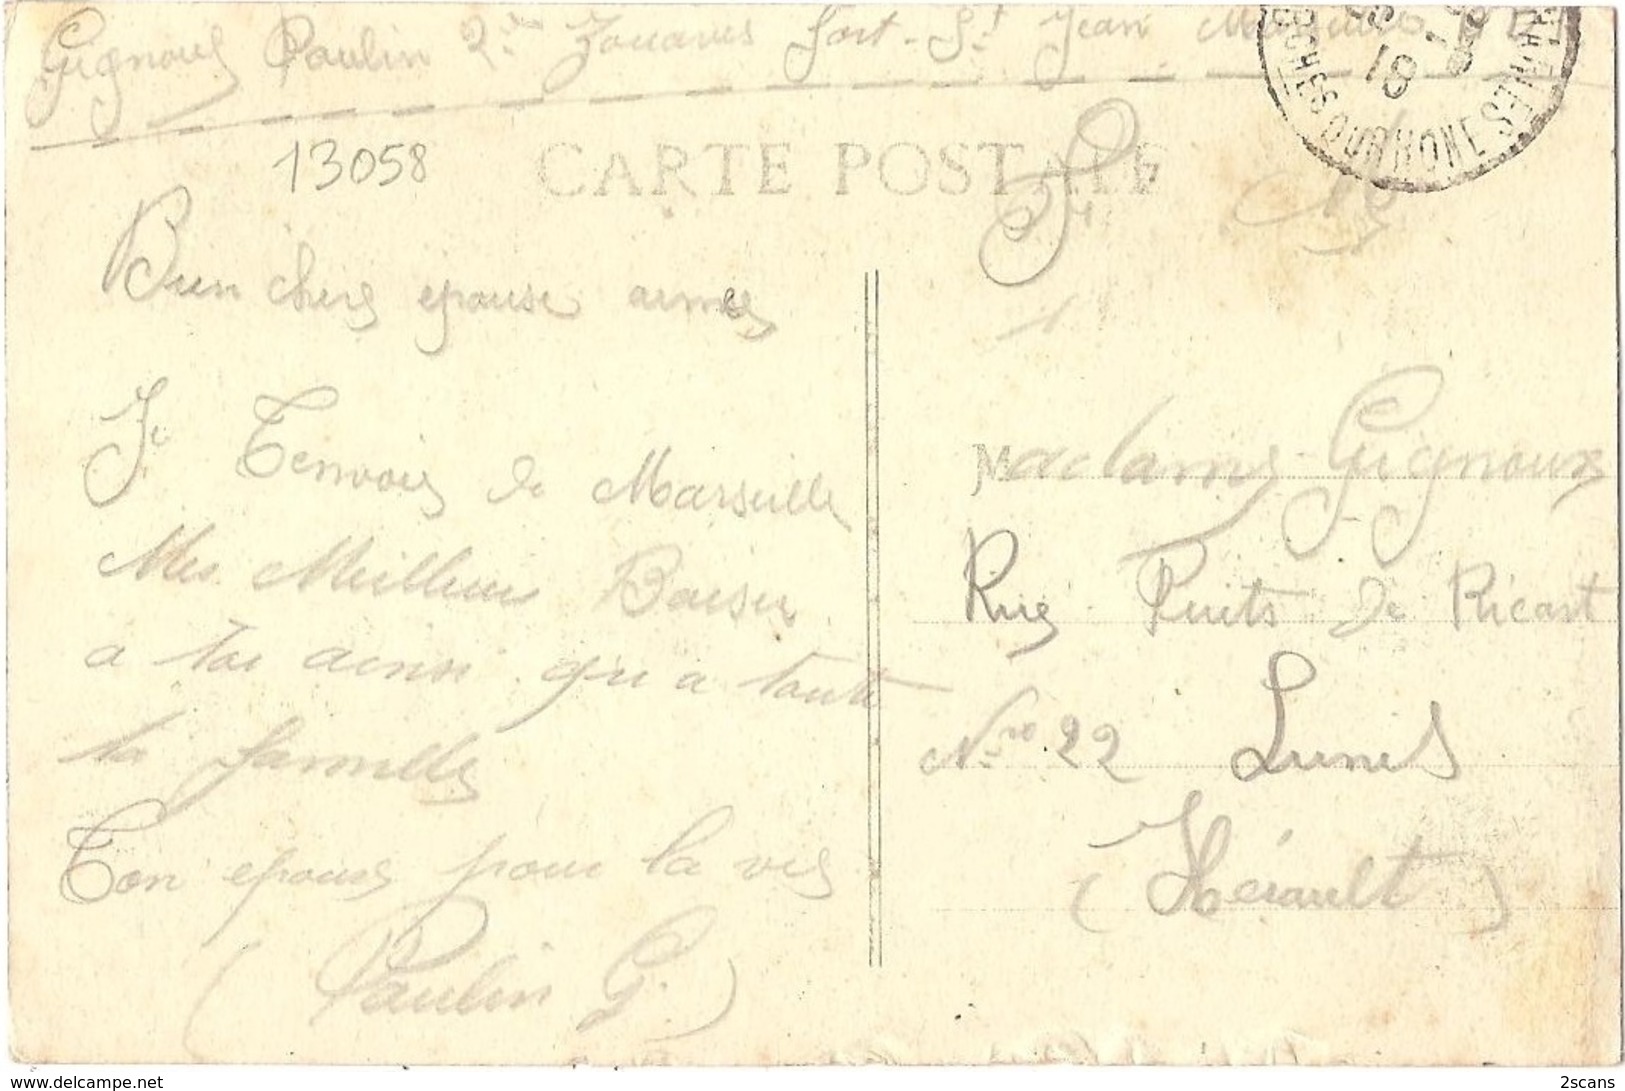 Gignoux Paulin 2e Zouaves fort-St Jean Marseille
13058
CARTE POSTALE
BOUCHES DU RHONE
18
Bien chere epouse aimee
Je T'envois de Marseille
Mes Meilleur Baiser
a toi ainsi qu'a toute
la famille
Ton epoux pour la vie
(Paulin G.)
Madame Gignoux
Rue Puits de Ricart
Nro 22 Lunel
(Hérault)
www.delcampe.net
2scans